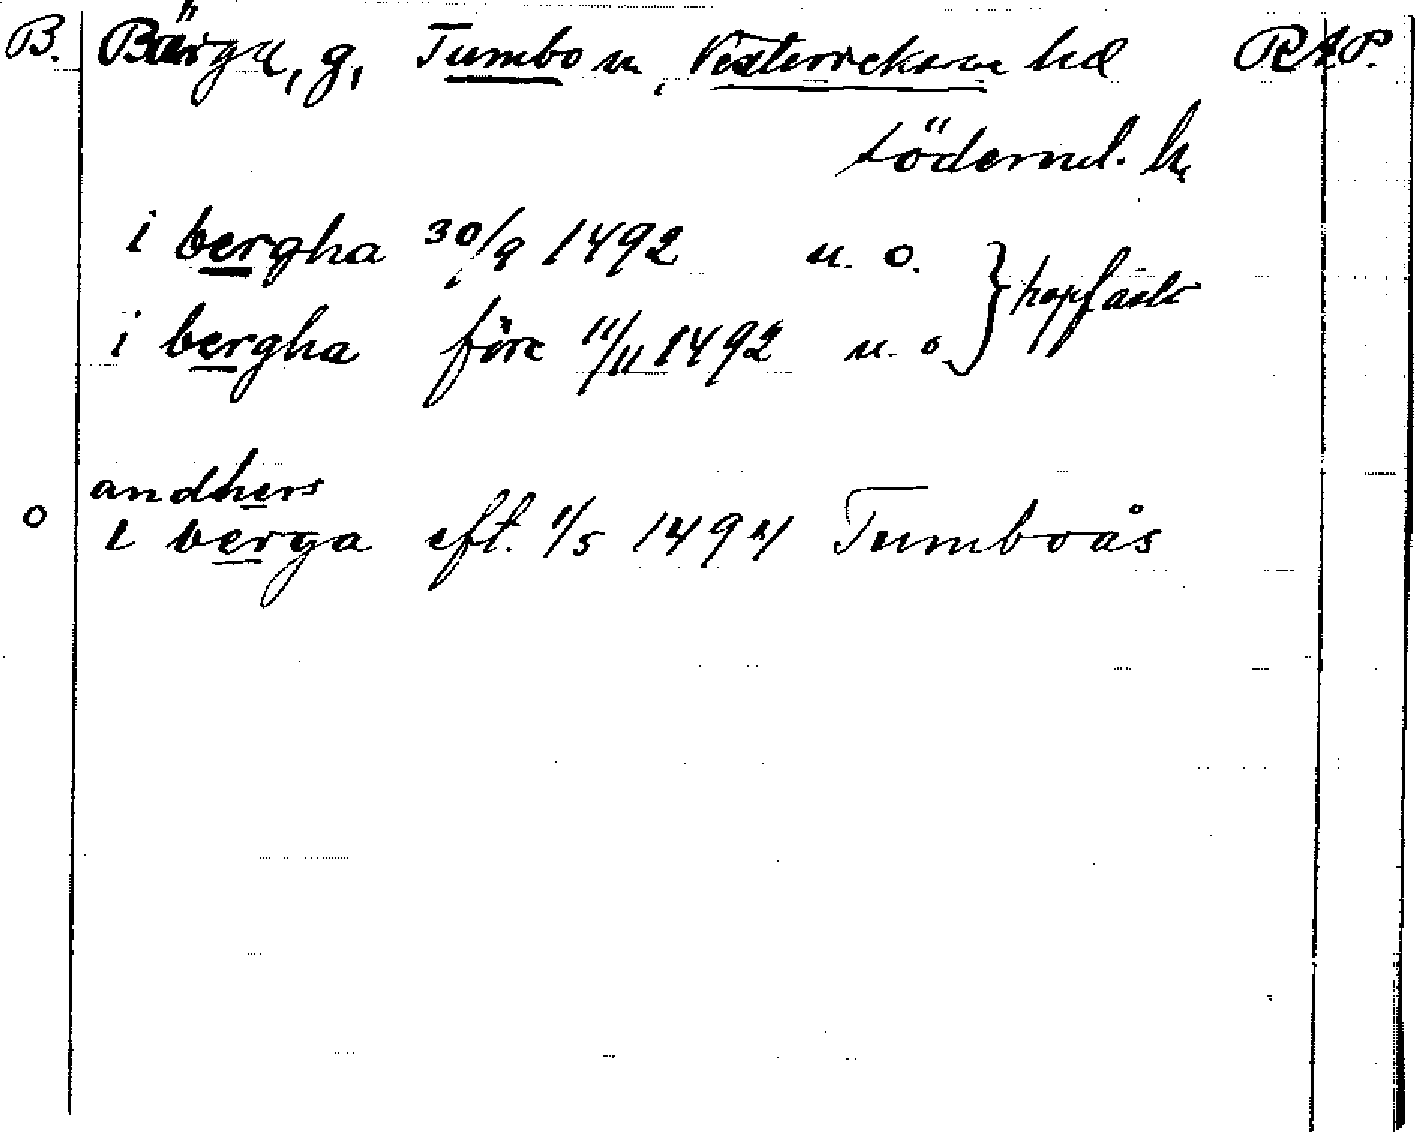 B. Bärga, g, Tumbo sn, Vesterrekarne hd RAP.
Söderml. l.
i bergha 30/9 1492 u. o.
i bergha före 11/11 1492 u. o. } hopfäst
andhers
o i berga eft. 1/5 1494 Tumboås